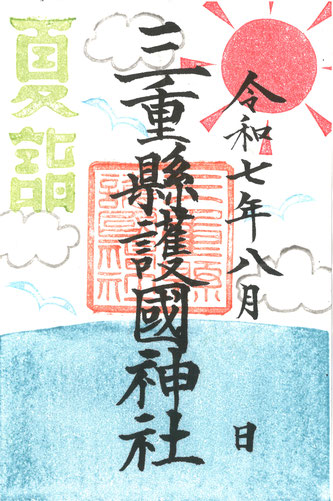 令和七年八月 日
三重縣護國神社
夏詣
三重県
護国神社